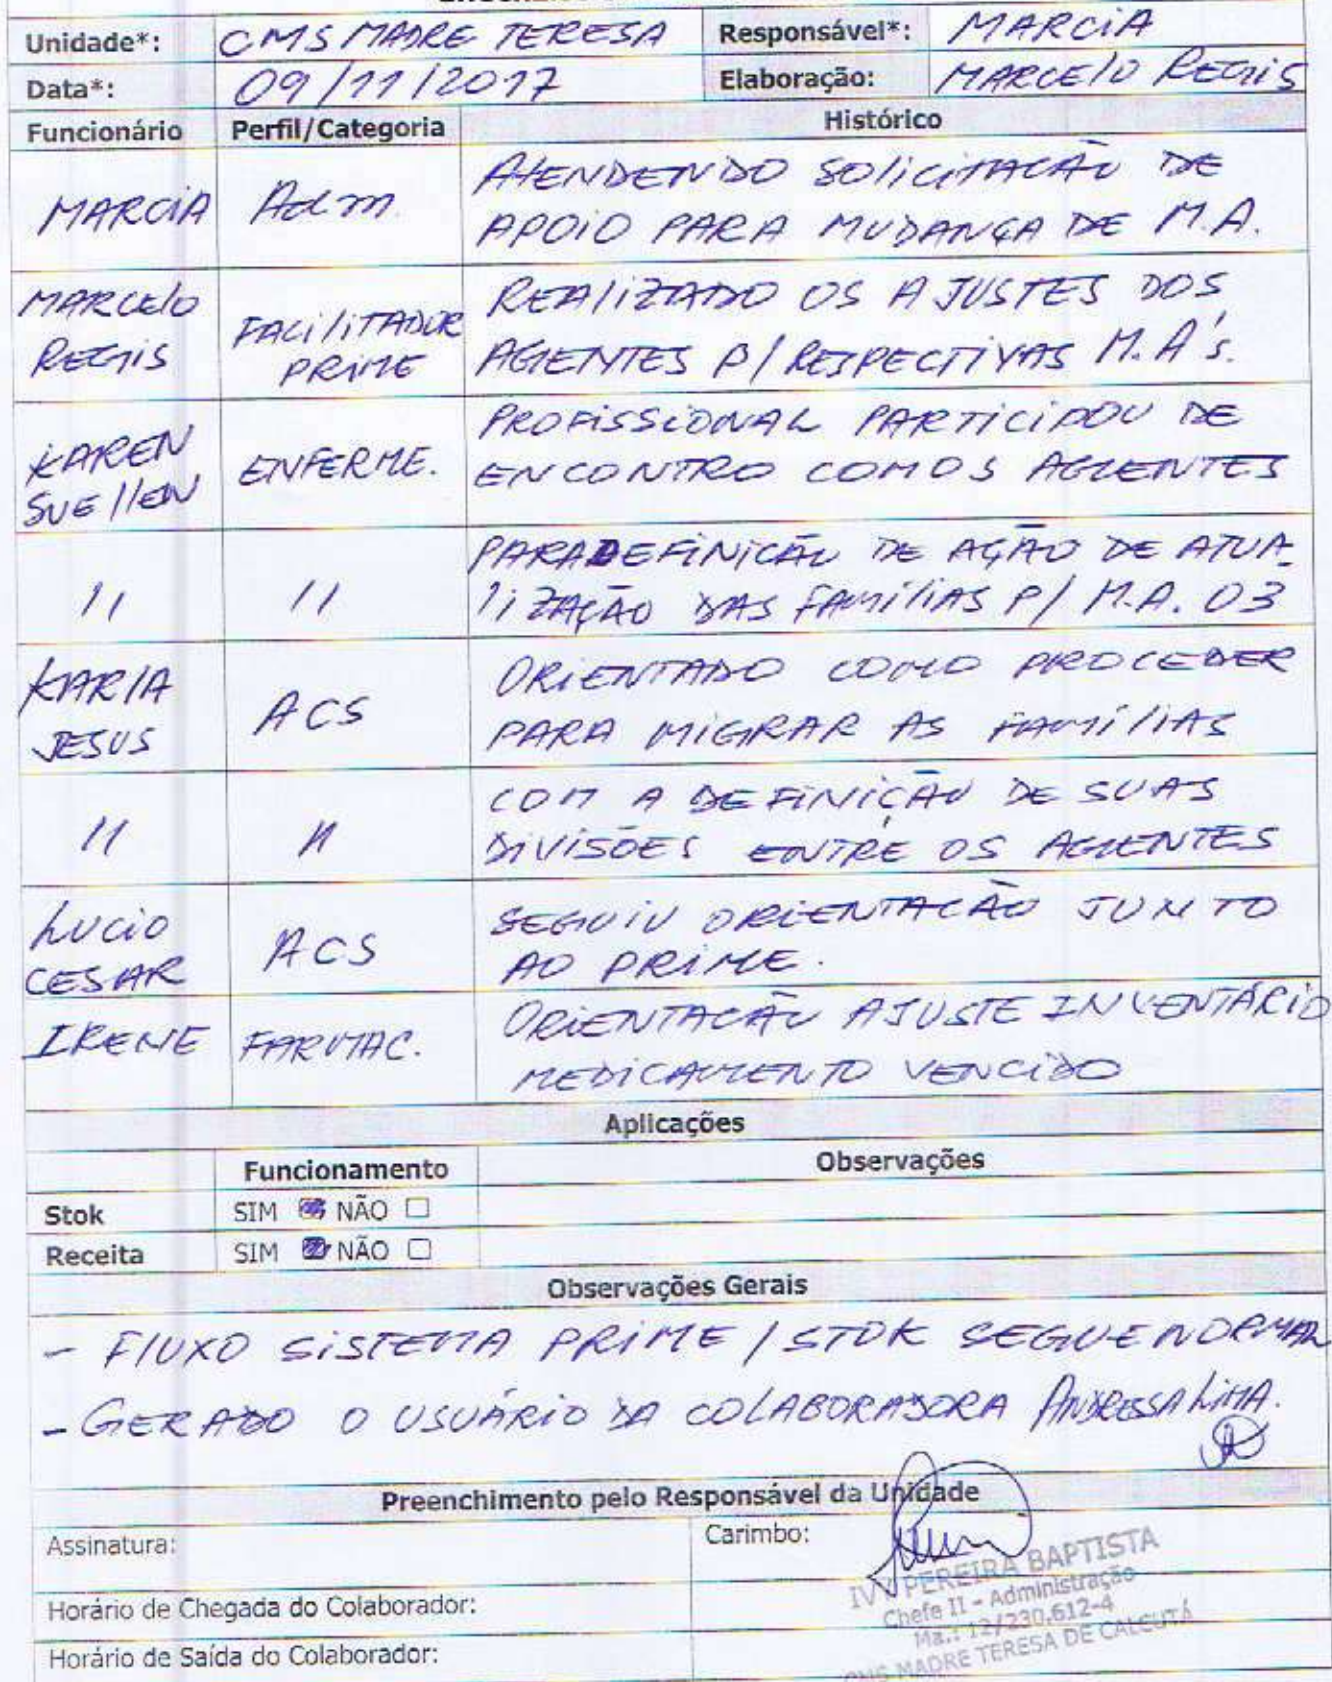 Unidade*: CMS MADRE TERESA Responsável*: MARCIA
Data*: 09/11/2017 Elaboração: MARCELO REGIS
Funcionário Perfil/Categoria Histórico
MARCIA Adm. ATENDENDO SOLICITAÇÃO DE
APOIO PARA MUDANÇA DE M.A.
MARCELO REALIZADO OS AJUSTES DOS
REGIS FACILITADOR
PRIME AGENTES P/ RESPECTIVAS M.A's.
KAREN PROFISSIONAL PARTICIPOU DE
SUELLEN ENFERME. ENCONTRO COM OS AGENTES
PARA DEFINICÃO DE AÇÃO DE ATUA-
11 11 LIZAÇÃO DAS FAMÍLIAS P/ M.A. 03
KARIA ORIENTADO COMO PROCEDER
JESUS ACS PARA MIGRAR AS FAMÍLIAS
COM A DEFINIÇÃO DE SUAS
11 11 DIVISÕES ENTRE OS AGENTES
LUCIO SEGUIU ORIENTACÃO JUNTO
CESAR ACS AO PRIME.
IRENE FARMAC. ORIENTACÃO AJUSTE INVENTÁRIO
MEDICAMENTO VENCIDO
Aplicações
Funcionamento Observações
Stok SIM NÃO
Receita SIM NÃO
Observações Gerais
- FLUXO SISTEMA PRIME / STOK SEGUE NORMAL
- GERADO O USUÁRIO DA COLABORADORA ANDRESSA LIMA.
Preenchimento pelo Responsável da Unidade
Assinatura: Carimbo:
PEREIRA BAPTISTA
Chefe II - Administração
Ma.: 12/230.612-4
CMS MADRE TERESA DE CALCUTÁ
Horário de Chegada do Colaborador:
Horário de Saída do Colaborador: